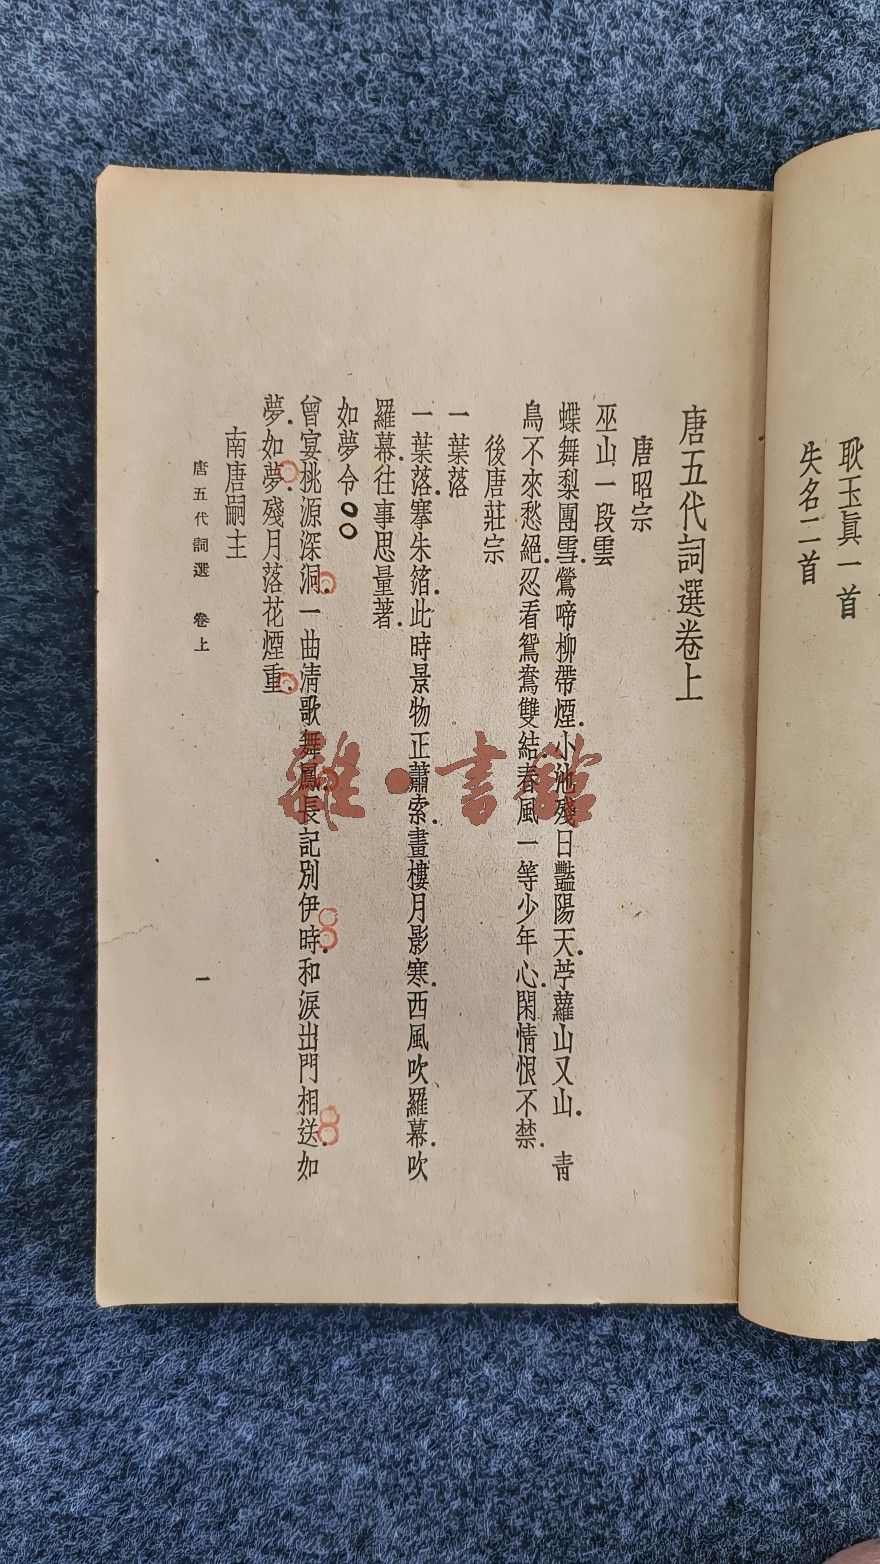 耿玉眞一首
失名二首
唐五代詞選卷上
唐昭宗
巫山一段雲
蝶舞梨園雪.鶯啼柳帶煙.小池殘日豔陽天.苧蘿山又山.　青
鳥不來愁絕.忍看鴛鴦雙結.春風一等少年心.閑情恨不禁.
後唐莊宗
一葉落
一葉落.搴朱箔.此時景物正蕭索.畫樓月影寒.西風吹羅幕.吹
羅幕.往事思量著.
如夢令
曾宴桃源深洞.一曲清歌舞鳳.長記別伊時.和淚出門相送.如
夢.如夢.殘月落花煙重.
南唐嗣主
唐五代詞選　卷上　一
雜·書館